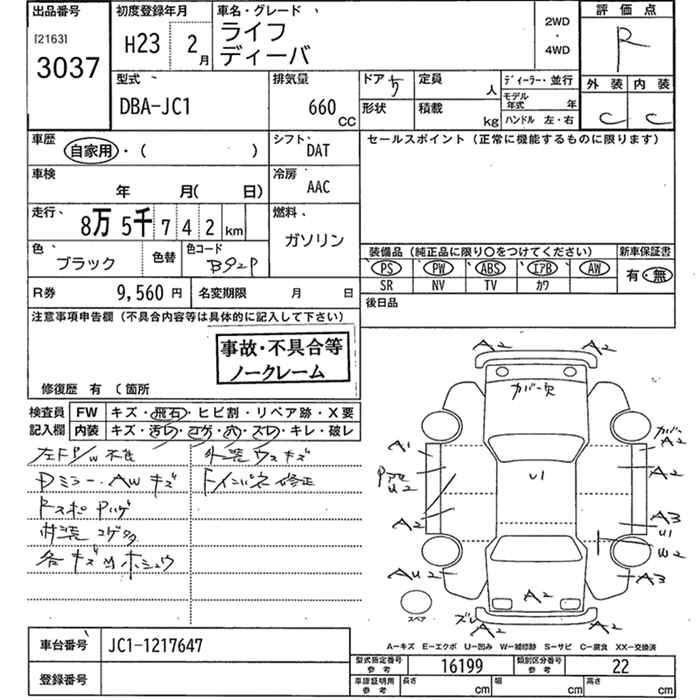 出品番号
[2163]
3037
初度登録年月
H23 2月
車名・グレード
ライフ
ディーバ
2WD
・
4WD
評価点
R
外装 内装
C C
型式
DBA-JC1
排気量
660
CC
ドア 5
定員 人
形状
積載 kg
ディーラー・並行
モデル年式 年
ハンドル 左・右
車歴
自家用・( )
シフト
DAT
セールスポイント(正常に機能するものに限ります)
車検
年 月( 日)
冷房
AAC
走行
8万 5千 7 4 2 km
燃料
ガソリン
色
ブラック
色替
色コード
B92P
装備品(純正品に限り○をつけてください)
新車保証書
PS PW ABS エアB AW
有・無
SR NV TV カワ
R券 9,560 円
名変期限 月 日
後日品
注意事項申告欄(不具合内容等は具体的に記入して下さい)
事故・不具合等
ノークレーム
修復歴 有 (箇所
検査員
記入欄
FW キズ・飛石・ヒビ割・リペア跡・X要
内装 キズ・汚レ・コゲ・穴・スレ・キレ・破レ
左F P/W 不良
外装 ウスキズ
Dミラー・AW キズ
内装 コゲ穴
各キズ凹ホシュウ
A2 A2
カバー欠
カバー
A2
A1
U2
A2
U1
A2
A3
U1
W2
AU2
A3
A2
ズレ
A2
A2
スペア
A-キズ E-エクボ U-凹み W-補修跡 S-サビ C-腐食 XX-交換済
車台番号 JC1-1217647
登録番号
型式指定番号
参考
16199
類別区分番号
参考
22
車庫証明用
参考
長さ cm 幅 cm 高さ cm